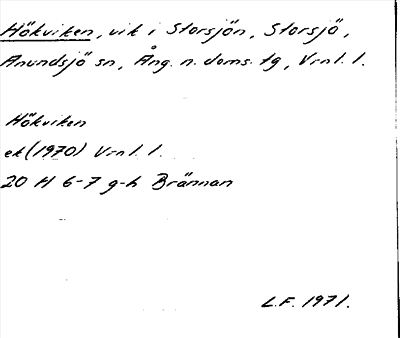 Hökviken, vik i Storsjön, Storsjö,
Anundsjö sn, Ång. n. doms. tg, Vrnl. l.
Hökviken
ek (1970) Vrnl. l.
20 H 6-7 g-h Brännan
L.F. 1971.